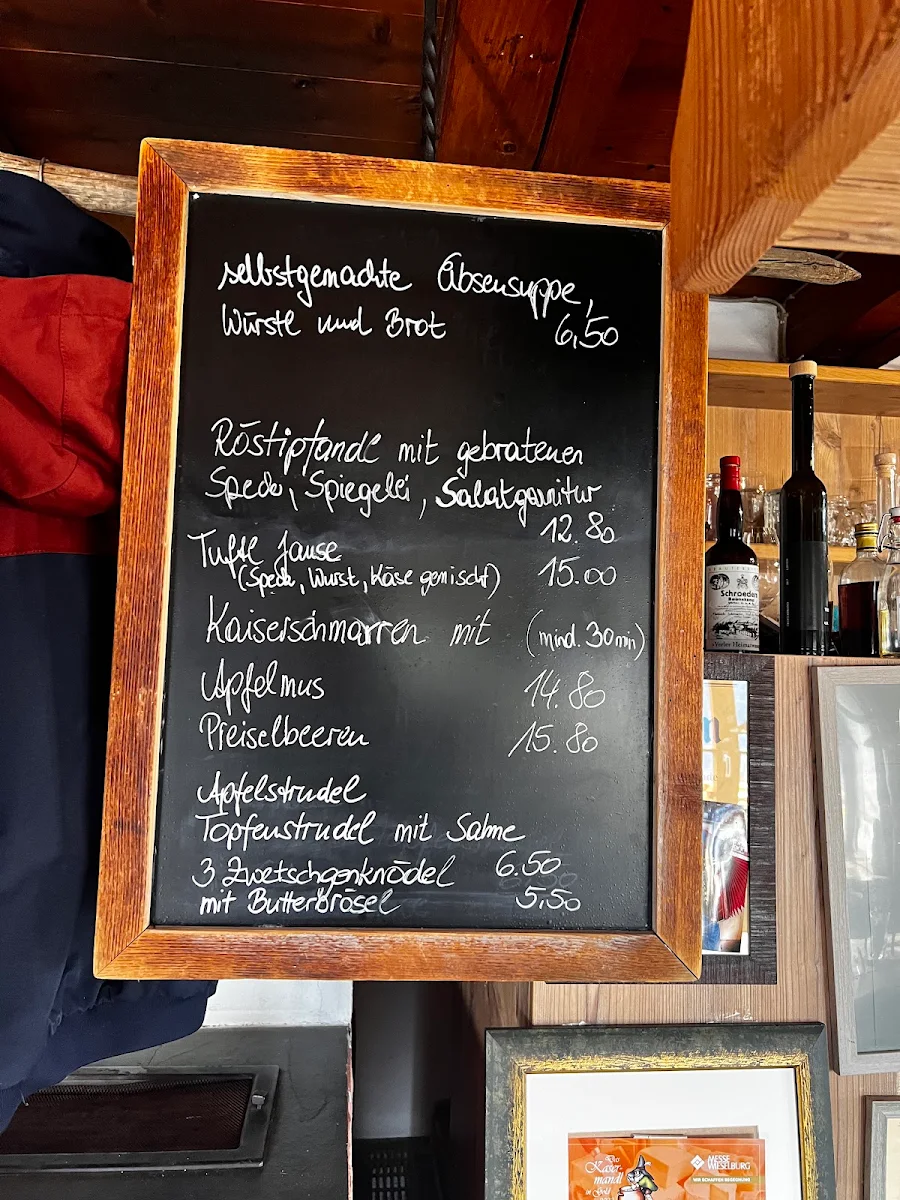 selbstgemachte Obsensuppe,
Würstl und Brot 6,50
Röstipfandl mit gebratenen
Speck, Spiegelei, Salatgarnitur
12.80
Tuftl Jause
(Speck, Wurst, Käse gemischt) 15.00
Kaiserschmarren mit (mind. 30min)
Apfelmus 14.80
Preiselbeeren 15.80
Apfelstrudel
Topfenstrudel mit Sahne
6.50
3 Zwetschgenknödel
mit Butterbrösel 5,50
Schroeder
Das
Kaser-
mandl
in Gold
MESSE
WIESELBURG
WIR SCHAFFEN BEGEGNUNG